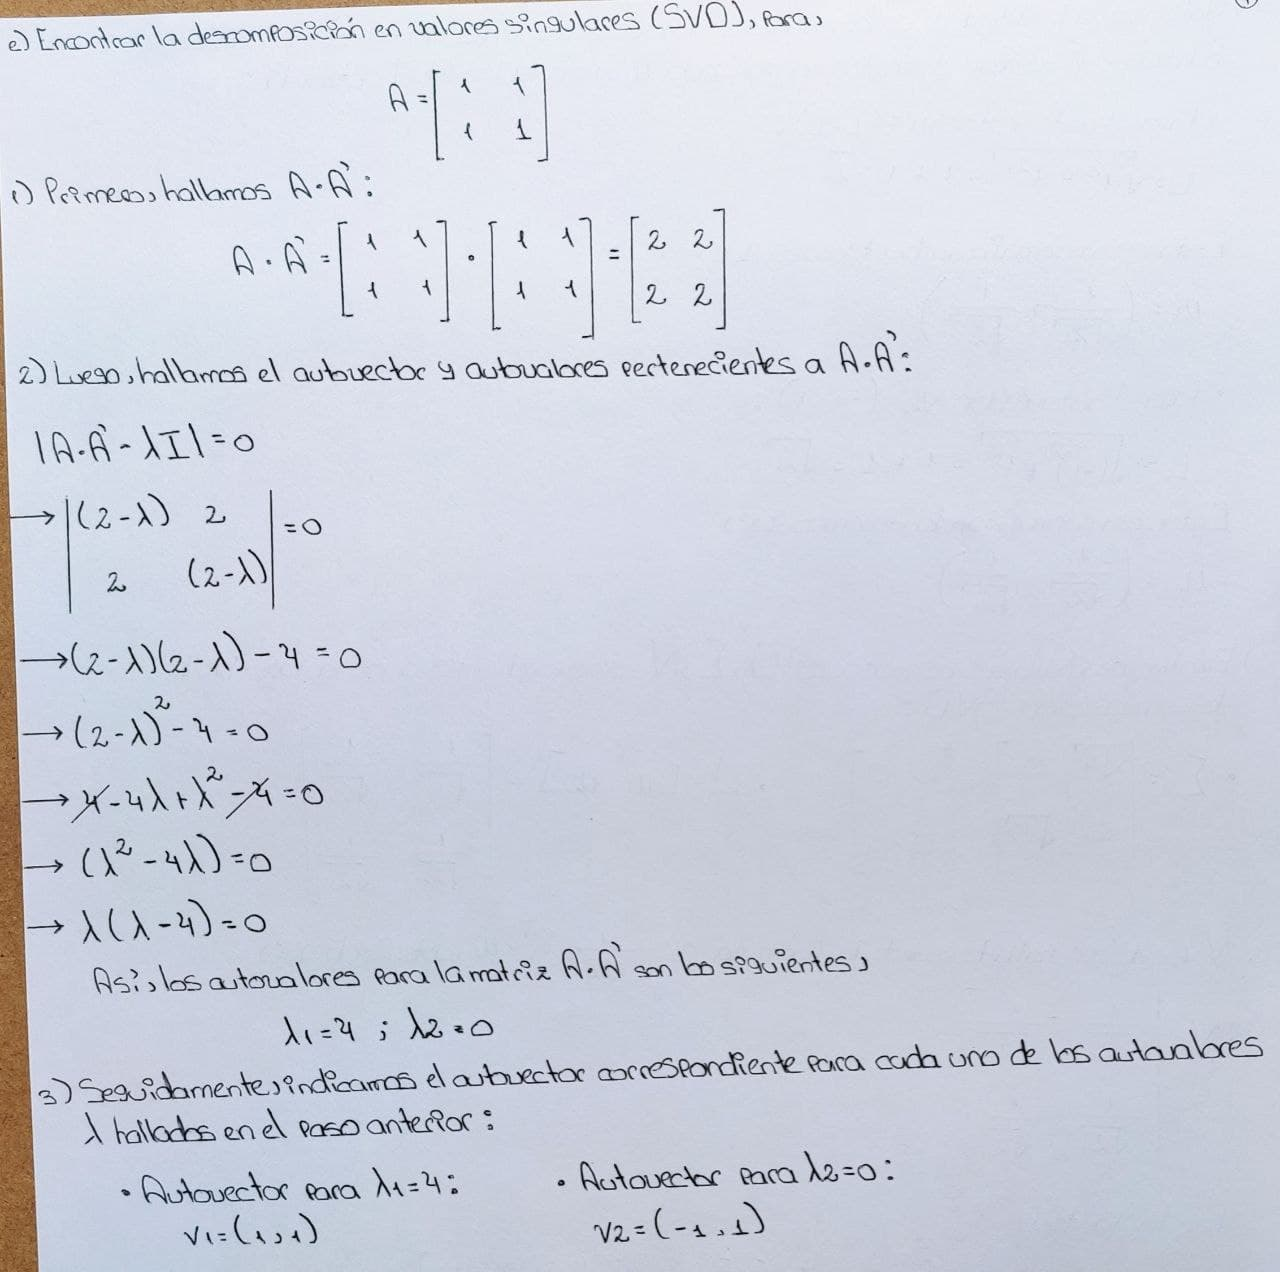 e) Encontrar la descomposición en valores singulares (SVD), para,
A = [ 1 1
1 1 ]
1) Primero, hallamos A·A`:
A · A` = [ 1 1 ; 1 1 ] · [ 1 1 ; 1 1 ] = [ 2 2 ; 2 2 ]
2) Luego, hallamos el autovector y autovalores pertenecientes a A·A`:
|A·A` - λI| = 0
→ |(2-λ) 2
2 (2-λ)| = 0
→ (2-λ)(2-λ) - 4 = 0
→ (2-λ)² - 4 = 0
→ 4 - 4λ + λ² - 4 = 0
→ (λ² - 4λ) = 0
→ λ(λ-4) = 0
Así, los autovalores para la matriz A·A` son los siguientes,
λ1 = 4 ; λ2 = 0
3) Seguidamente, indicamos el autovector correspondiente para cada uno de los autovalores
λ hallados en el paso anterior:
• Autovector para λ1=4: • Autovector para λ2=0:
V1=(1,1) V2=(-1,1)